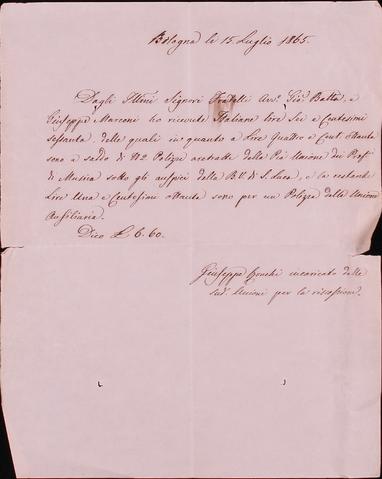 Bologna li 15. Luglio 1865.
Dagli Illmi Signori Fratelli Avv. Gio. Batta, e
Giuseppe Marconi ho ricevute Italiane lire Sei e Centesimi
Sessanta, delle quali in quanto a Lire Quattro e Cent. Ottanta
sono a saldo di N.2 Polizze arretrate della Pia Unione dei Prof.
di Musica sotto gli auspici della B.V. di S. Luca, e la restante
Lire Una e Centesimi ottanta sono per un Polizza della Unione
Ausiliaria.
Dico L. 6. 60.
Giuseppe incaricato dalle
sud. Unioni per la riscossione.